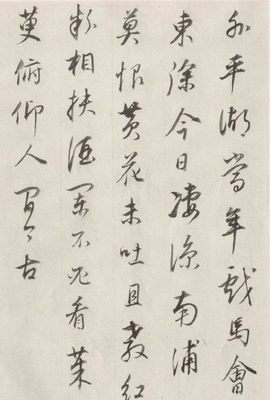 外平湖當年戲馬會
東徐今日凄涼南浦
莫恨黄花未吐且教紅
粉相扶酒闌不必看茱
萸俯仰人間今古